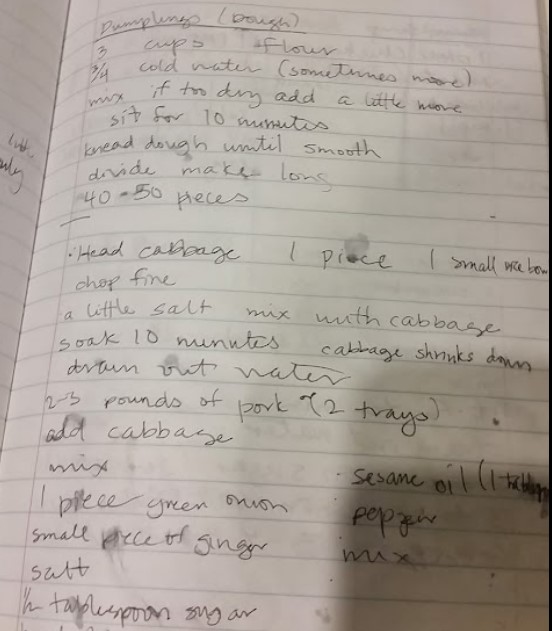 Dumplings (Dough)
3 cups Flour
3/4 cold water (sometimes more)
mix if too dry add a little more
sit for 10 minutes
knead dough until smooth
divide make long
40-50 pieces
· Head cabbage 1 piece 1 small rice bow
chop fine
a little salt mix with cabbage
soak 10 minutes cabbage shrinks down
drain out water
2-3 pounds of pork (2 trays)
add cabbage
mix
1 piece green onion
small piece of ginger
salt
1/2 tablespoon sugar
· sesame oil (1
pepper
mix